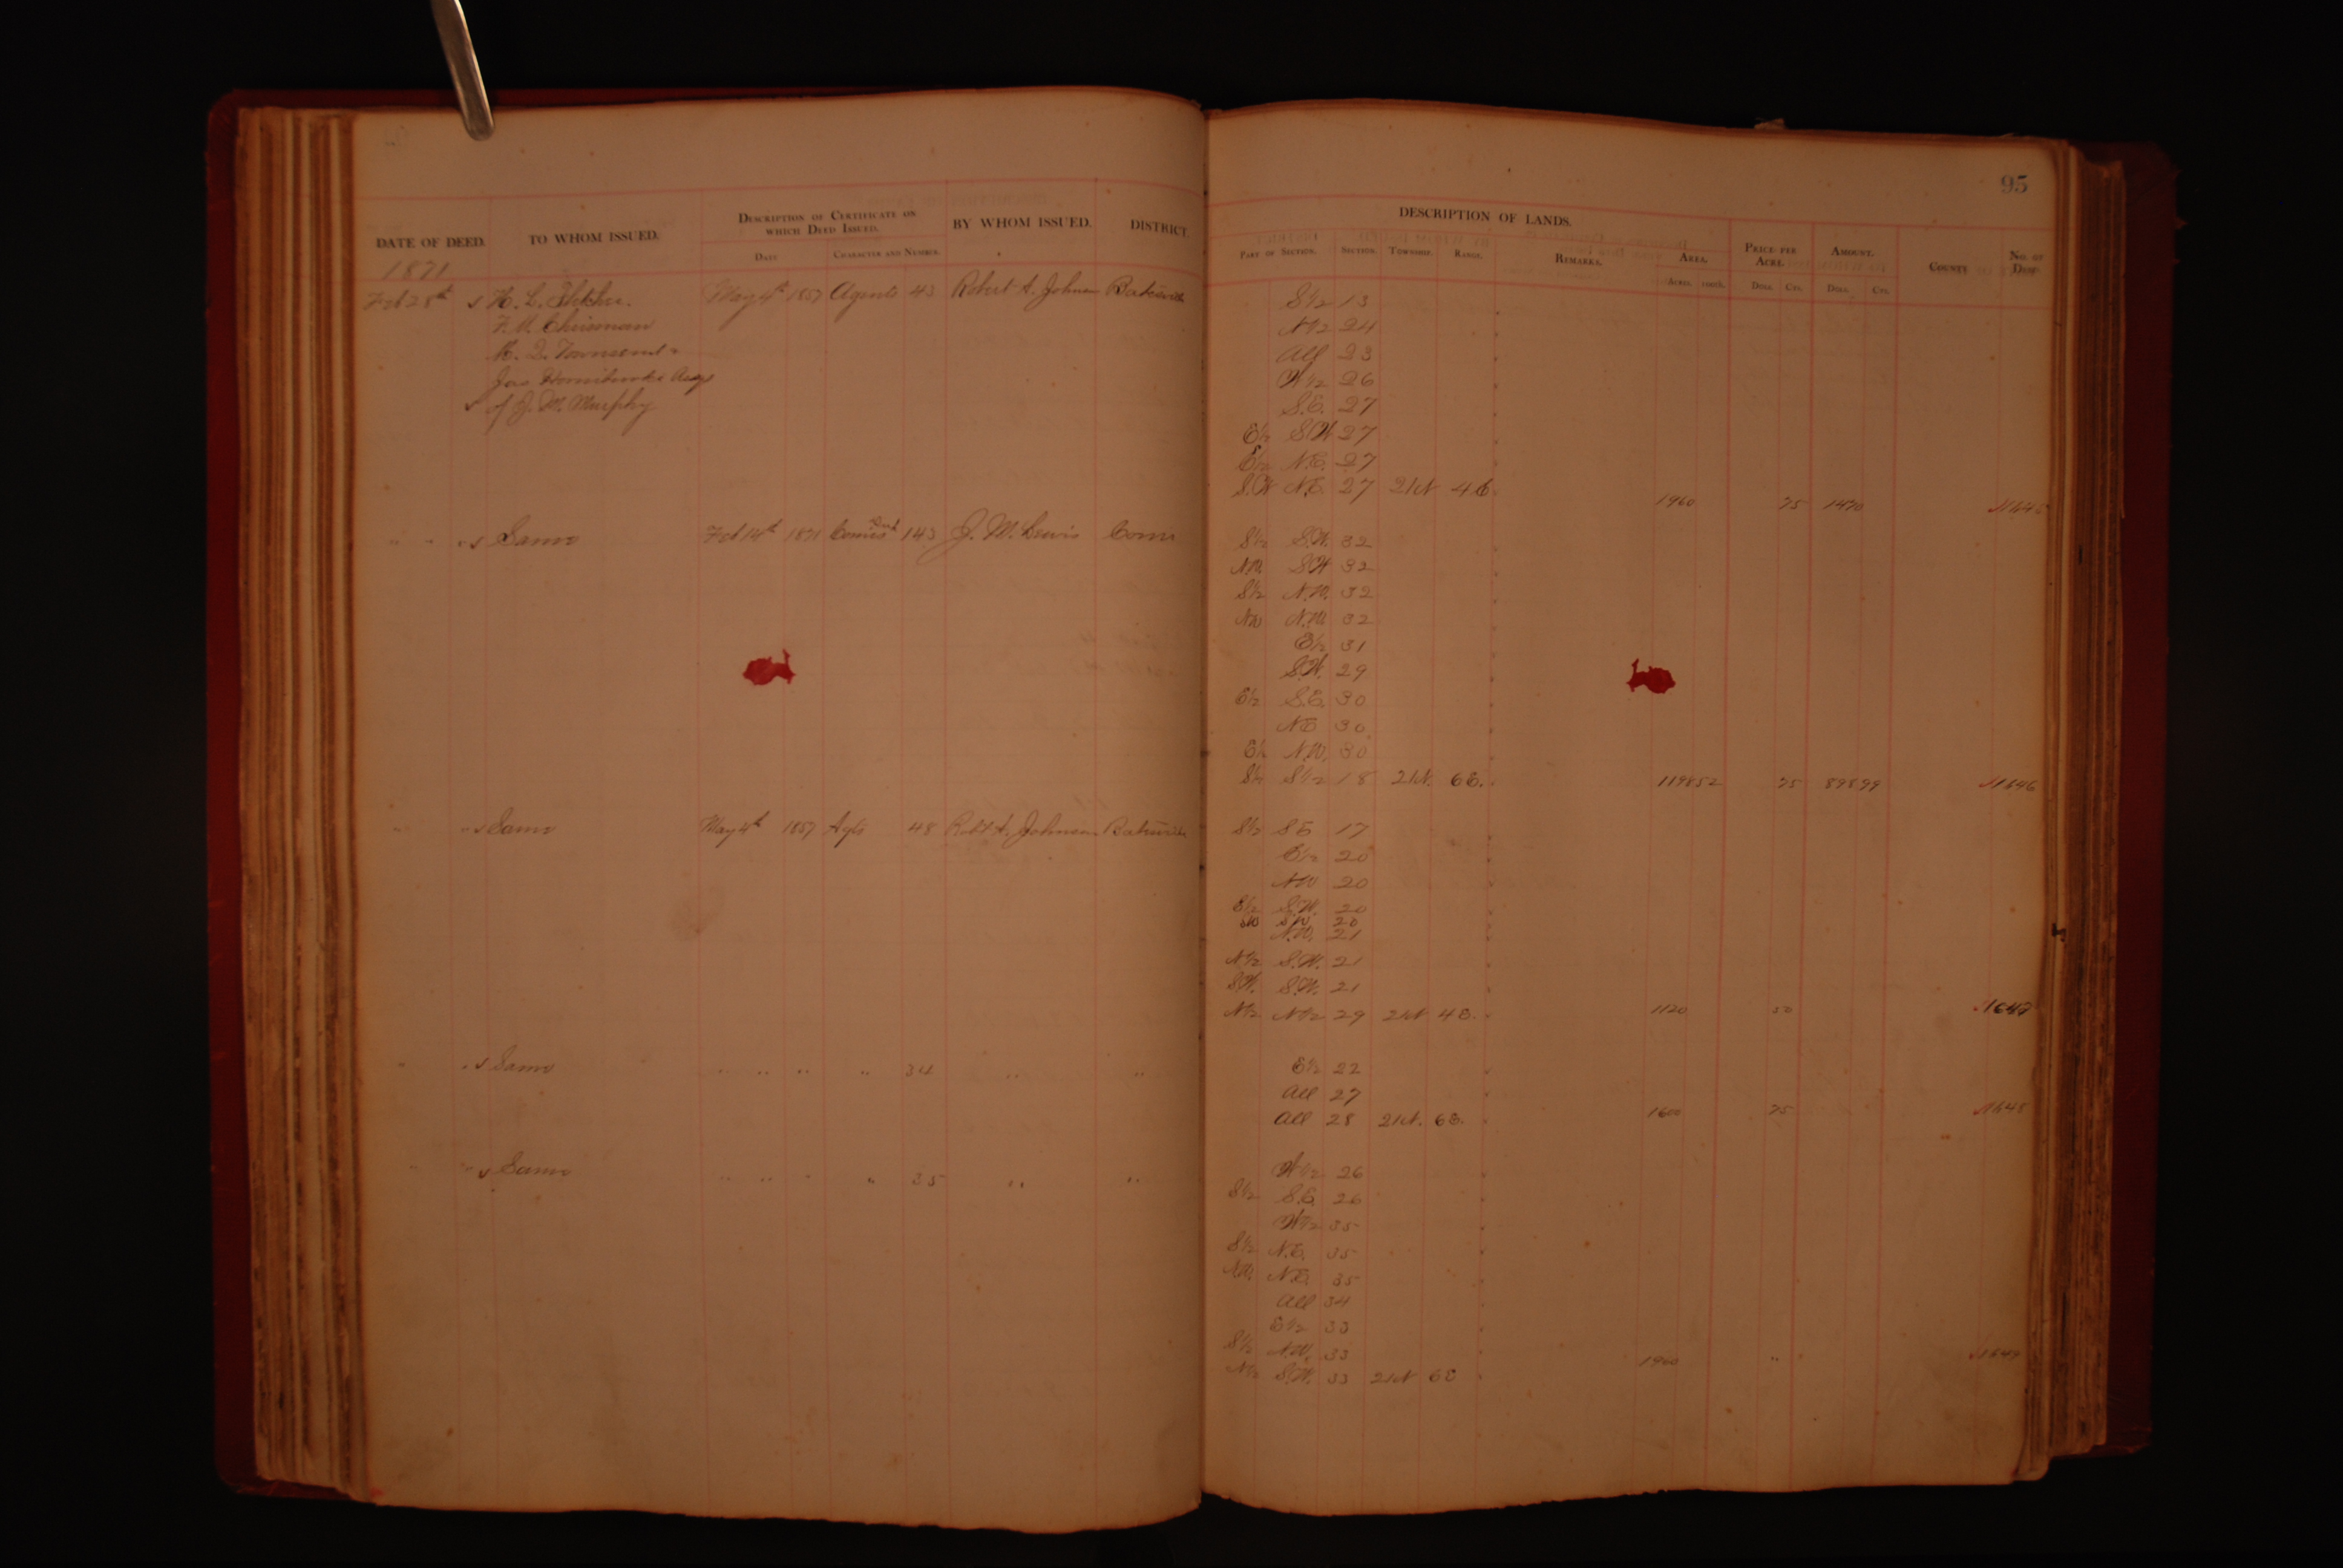 95
DATE OF DEED. TO WHOM ISSUED. DESCRIPTION OF CERTIFICATE ON WHICH DEED ISSUED. BY WHOM ISSUED. DISTRICT. DESCRIPTION OF LANDS. PRICE PER ACRE. AMOUNT. COUNTY NO. OF DEED
DATE CHARACTER AND NUMBER. PART OF SECTION. SECTION. TOWNSHIP. RANGE. REMARKS. AREA.
ACRES. 100TH. DOLS. CTS. DOLS. CTS.
1871
Feb 28th H. L. May 4th 1857 Agents 43 Robert A. Johnson Batesville S½ 13
F. M. Chrisman N½ 24
M. D. Townsend All 23
Jas Hornibrook W½ 26
of J. M. Murphy S.E. 27
E½ SW 27
E½ N.E. 27
S.W N.E. 27 21N 4E 1960 75 1470 1645
" " " Same Feb 14th 1871 143 J. M. Lewis Comr S½ S.W. 32
N.W. SW 32
S½ N.W. 32
NW N.W. 32
E½ 31
S.W. 29
E½ S.E. 30
NE 30
E½ N.W. 30
S½ S½ 18 21N. 6E. 119852 75 89899 1646
" " Same May 4th 1857 Agts 48 Robt A. Johnson Batesville S½ SE 17
E½ 20
NW 20
E½ S.W. 20
SW SW 20
N.W. 21
N½ S.W. 21
S.W. S.W. 21
N½ N½ 29 21N 4E. 1120 50 1647
" " Same " " " " 34 " " E½ 22
All 27
All 28 21N. 6E. 1600 75 1648
" " Same " " " " 35 " " W½ 26
S½ S.E. 26
W½ 35
S½ N.E. 35
N.W. N.E. 35
All 34
E½ 33
S½ N.W. 33
N½ S.W. 33 21N 6E 1960 " 1649